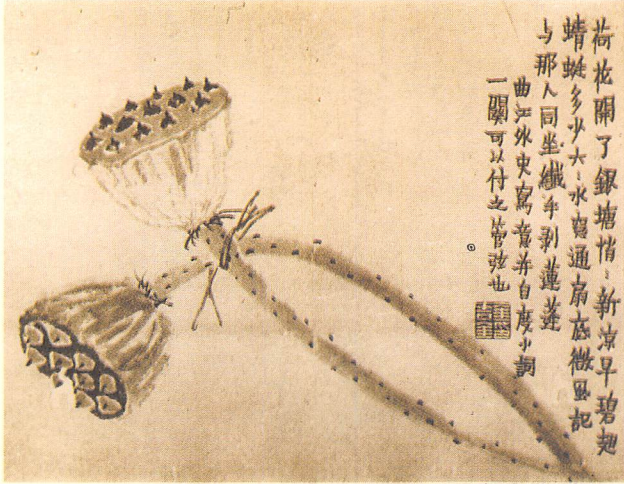 荷花開了銀塘悄悄新涼早碧翅
蜻蜓多少六六水窗通扇底微風記
与那人同坐纖手剥蓮蓬
曲江外史寫意并自度小詞
一闋可以付之管弦也